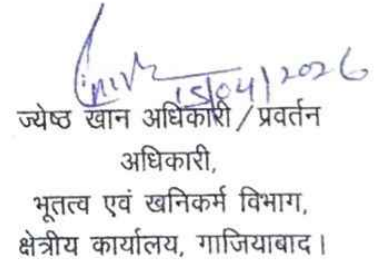 15/04/2026
ज्येष्ठ खान अधिकारी / प्रवर्तन
अधिकारी,
भूतत्व एवं खनिकर्म विभाग,
क्षेत्रीय कार्यालय, गाजियाबाद।